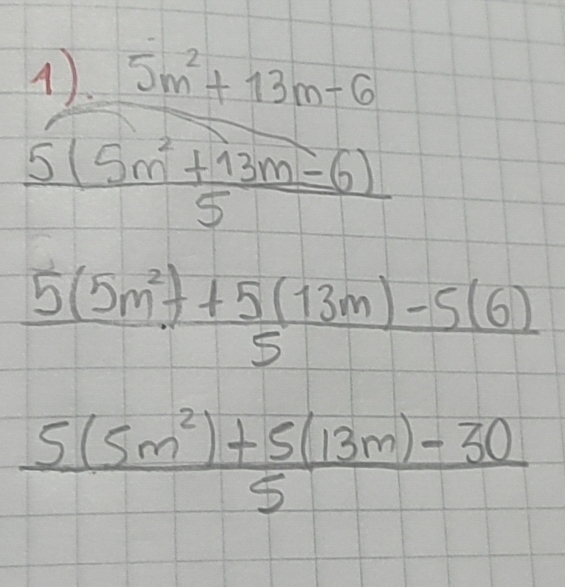 1). 5m² + 13m - 6
5(5m² + 13m - 6)
5
5(5m²) + 5(13m) - 5(6)
5
5(5m²) + 5(13m) - 30
5